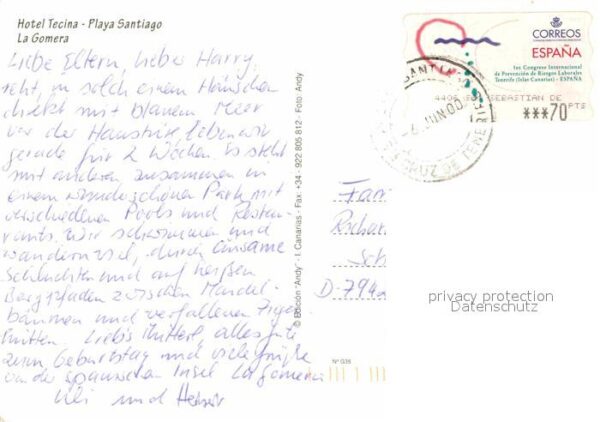 Hotel Tecina - Playa Santiago
La Gomera
Liebe Eltern, lieber Harry,
seht, in solch einem Häuschen
direkt mit blauem Meer
vor der Haustüre leben wir
gerade für 2 Wochen. Es steht
mit anderen zusammen in
einem wunderschönen Park mit
verschiedenen Pools und Restau-
rants. Wir schwimmen und
wandern viel, durch einsame
Schluchten und auf heißen
Bergpfaden zwischen Mandel-
bäumen und verfallenen Ziegen-
hütten. Liebs Mutterl, alles gute
zum Geburtstag und viele Grüße
von der spanischen Insel La Gomera
Uli und
© Edición "Andy" - I. Canarias - Fax +34 - 922 805 812 - Foto Andy
CORREOS
ESPAÑA
1er Congreso Internacional
de Prevención de Riesgos Laborales
Tenerife (Islas Canarias) - ESPAÑA
4406 SEBASTIAN DE
PTS
***70
JUN 00
CRUZ DE TENE
Fam
Schu
D-794
privacy protection
Datenschutz